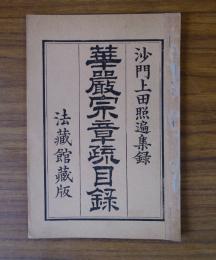 沙門上田照遍集録
華嚴宗章疏目錄
法藏館藏版